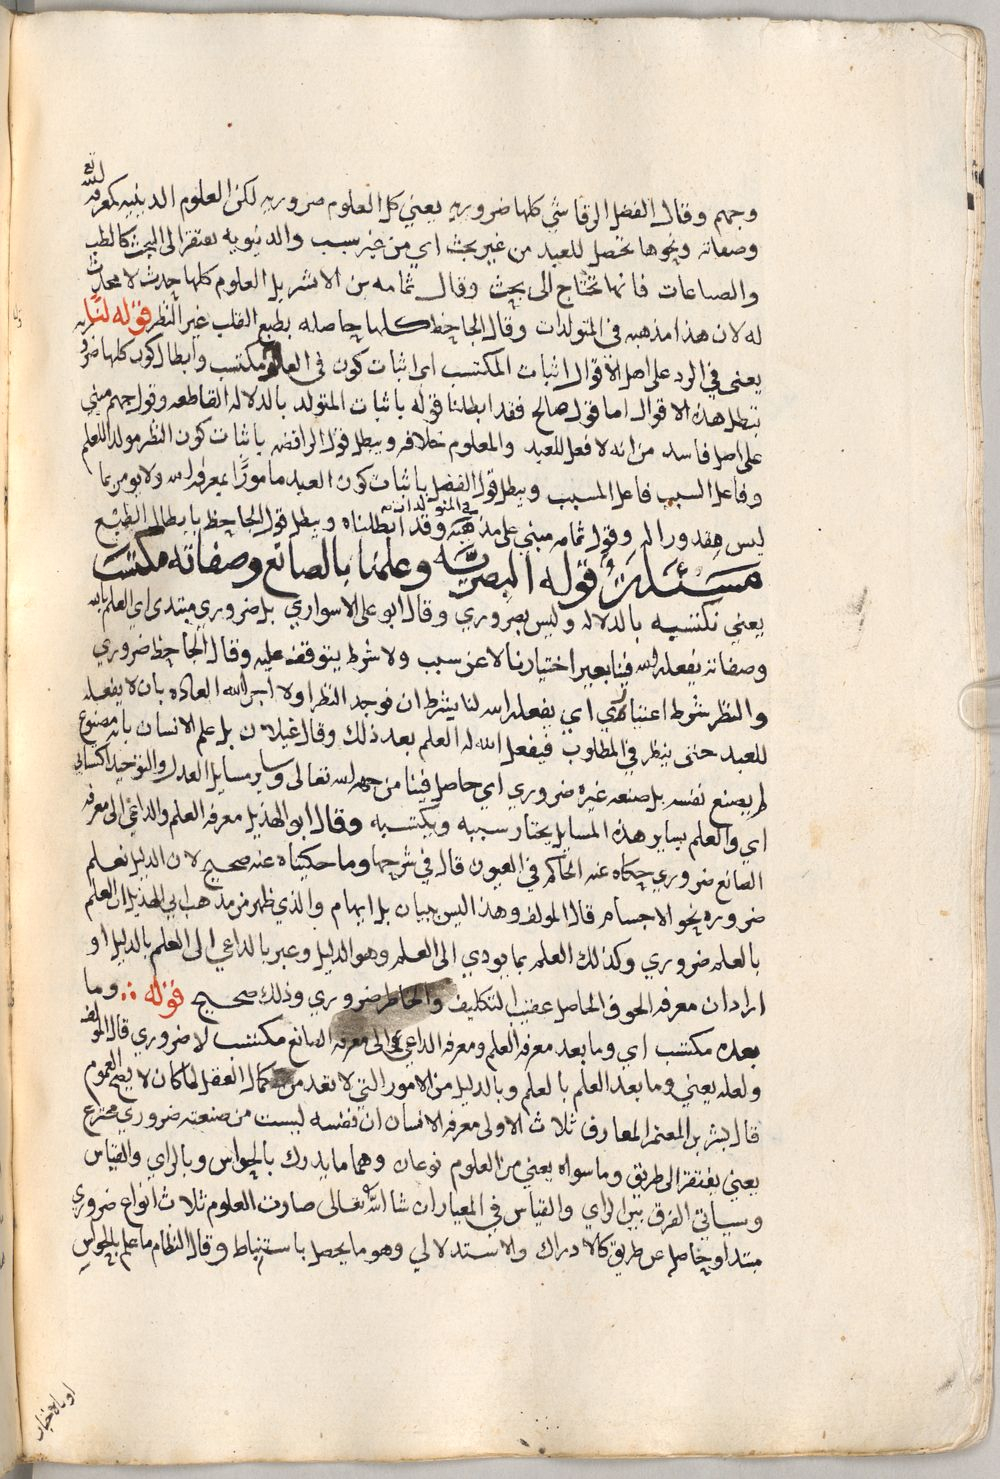 وجهم وقال الفضل الرقاشي كلها ضروريه يعني كل العلوم ضروريه لكن العلوم الدينيه كمعرفة الله تع
وصفاته ونحوها تحصل للعبد من غير بحث اي من غير سبب والدنيويه تفتقر الى البحث كالطب
والصناعات فانها تحتاج الى بحث وقال ثمامه بن الاشرس بل العلوم كلها حدث لا محدث
له لان هذا مذهبه في المتولدات وقال الجاحظ كلها حاصله بطبع القلب غير النظر قوله لنا
يعني في الرد على اهل الاقوال اثبات المكتسب اي اثبات كون في العلوم مكتسب وابطال كون كلها ضروريه
تبطل هذه الاقوال اما قول صالح فقد ابطلنا قوله باثبات المتولد بالدلاله القاطعه وقول جهم مبني
على اصل فاسد من انه لا فعل للعبد والمعلوم خلافه ويبطل قول الرافض باثبات كون النظر مولدا للعلم
وفاعل السبب فاعل المسبب ويبطل قول الفضل باثبات كون العبد مامورًا بمعرفة الله ولا يومر بما
ليس مقدورا له وقول ثمامه مبني على مذهبه في المتولدات وقد ابطلناه ويبطل قول الجاحظ بابطال الطبع
مسئلة قوله البصريه وعلمنا بالصانع وصفاته مكتسب
يعني نكتسبه بالدلاله وليس بضروري وقال ابو علي الاسواري بل ضروري مبتدى اي العلم بالله
وصفاته يفعله الله فينا بغير اختيارنا لا عن سبب ولا شرط يتوقف عليه وقال الجاحظ ضروري
والنظر شرط اعتيادي اي يفعله الله لنا بشرط ان نوجد النظر اولا اجرا الله العاده بان لا يفعله
للعبد حتى ينظر في المطلوب فيفعل الله له العلم بعد ذلك وقال غيلان بل علم الانسان بانه مصنوع
لم يصنع نفسه بل صنعه غيره ضروري اي حاصل فينا من جهه الله تعالى وساير مسايل العدل والتوحيد اكتسابي
اي والعلم بساير هذه المسايل يختار سببه ويكتسبه وقال ابو الهذيل معرفه العلم والداعي الى معرفه
الصانع ضروري حكاه عنه الحاكم في العيون قال في شرحها وما حكيناه عنه صحيح لان الدليل نعلم
ضروره نحو الاجسام قال المولف وهذا ليس ببيان بل ايهام والذي ظهر من مذهب ابي الهذيل ان العلم
بالعلم ضروري وكذلك العلم بما يودي الى العلم وهو الدليل وعبر بالداعي الى العلم بالدليل او
اراد ان معرفه الخوف الحاصل عقيب التكليف والخاطر ضروري وذلك صحيح قوله وما
بعده مكتسب اي وما بعد معرفه العلم ومعرفه الداعي الى معرفه الصانع مكتسب لا ضروري قال المولف
ولعله يعني وما بعد العلم بالعلم وبالدليل من الامور التي لا تعد من كمال العقل لما كان لا يصح العموم
قال بشر بن المعتمر المعارف ثلاث الاولى معرفه الانسان ان نفسه ليست من صنعته ضروري مخترع
يعني يفتقر الى طريق وما سواه يعني من العلوم نوعان وهما ما يدرك بالحواس وبالراي والقياس
وسياتي الفرق بين الراي والقياس في المعيار ان شا الله تعالى صارت العلوم ثلاث انواع ضروري
مبتدا وحاصل عن طريق كالادراك والاستدلالي وهو ما يحصل باستنباط وقال النظام ما علم بالحواس